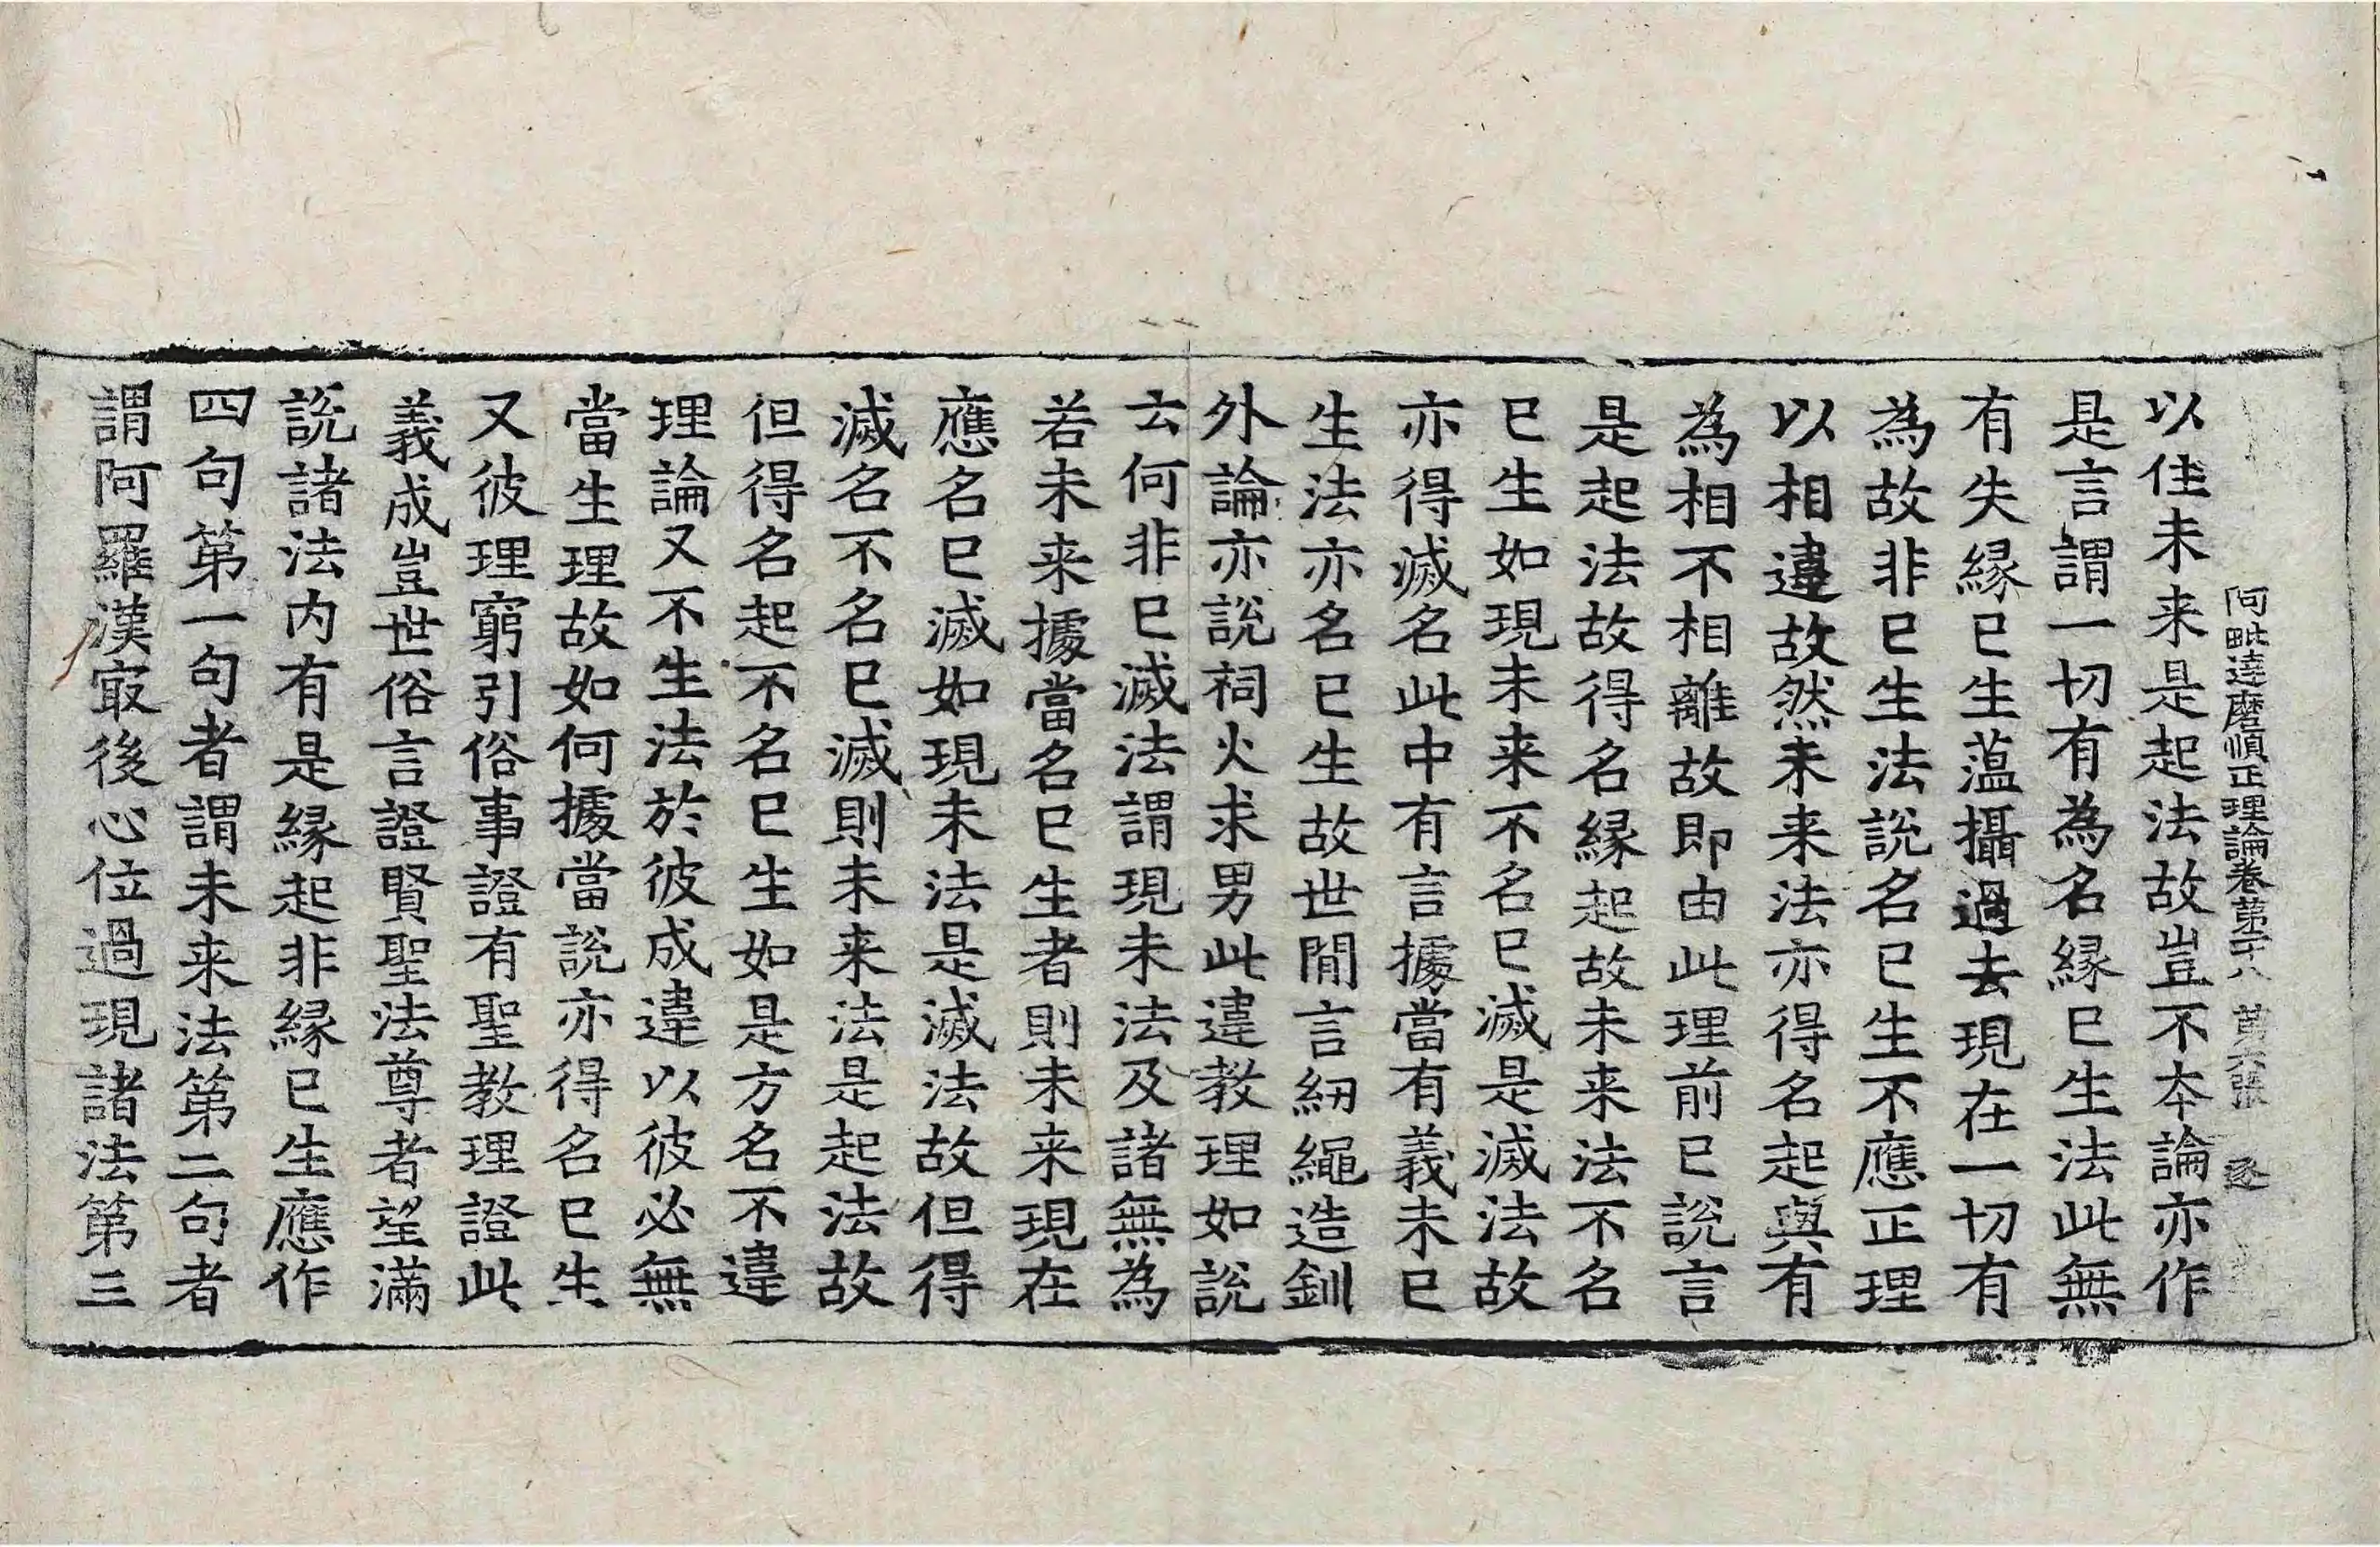 阿毗達磨順正理論卷第二十八 第六張 逐
以住未来是起法故豈不本論亦作
是言謂一切有為名縁已生法此無
有失縁已生蕰攝過去現在一切有
為故非已生法說名已生不應正理
以相違故然未来法亦得名起與有
為相不相離故即由此理前已說言
是起法故得名縁起故未来法不名
已生如現未来不名已滅是滅法故
亦得滅名此中有言據當有義未已
生法亦名已生故世間言紉繩造釧
外論亦說祠火求男此違教理如說
云何非已滅法謂現未法及諸無為
若未来據當名已生者則未来現在
應名已滅如現未法是滅法故但得
滅名不名已滅則未来法是起法故
但得名起不名已生如是方名不違
理論又不生法於彼成違以彼必無
當生理故如何據當說亦得名已生
又彼理窮引俗事證有聖教理證此
義成豈世俗言證賢聖法尊者望滿
說諸法内有是縁起非縁已生應作
四句第一句者謂未来法第二句者
謂阿羅漢㝡後心位過現諸法第三